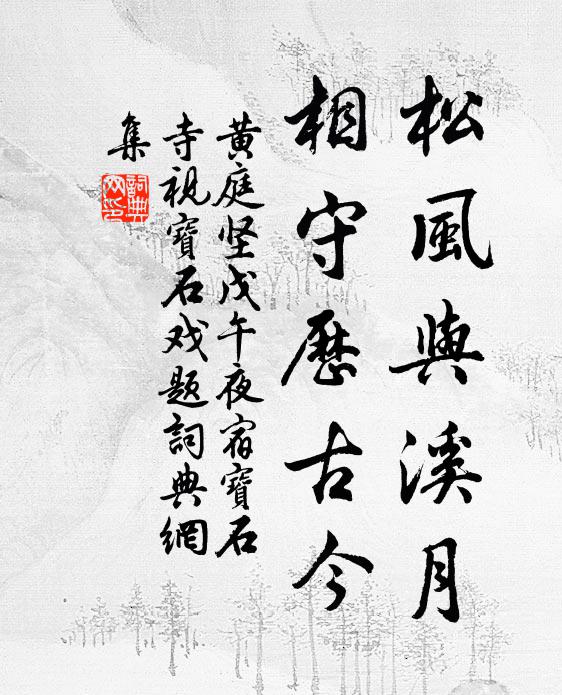 松風與溪月
相守歷古今
黄庭坚戊午夜宿寶石
寺視寶石戏题詞典網
集
詞典網印